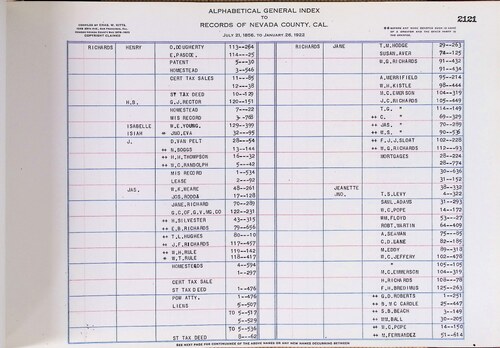 ALPHABETICAL GENERAL INDEX
TO
RECORDS OF NEVADA COUNTY, CAL.
JULY 21, 1856, TO JANUARY 26, 1922
2121
COPYRIGHT CLAIMED
RICHARDS HENRY O.DOUGHERTY 113--264 RICHARDS JANE T.M.HODGE 29--263
E.PASCOE 114--25 SUSAN.AVER 74--125
PATENT 5---30 W.G.RICHARDS 91--432
HOMESTEAD 3--546 91--434
CERT TAX SALES 11--65 A.MERRIFIELD 95--214
12---38 W.H.KISTLE 98--444
ST TAX DEED 10--129 M.C.EMERSON 104--319
H.B. G.J.RECTOR 120--151 J.C.RICHARDS 105--449
HOMESTEAD 7---22 T.G. " 114--149
MIS RECORD 3-768 ++ C. " 69--329
ISABELLE W.E.YOUNG 129--399 ++ JAS. " 70--289
ISIAH ++ JNO.EVA 32--95 ++ W.S. " 90--536
J. D.VAN PELT 28---54 ++ F.J.J.SLOAT 102--228
++ N.BOGGS 13--144 ++ W.G.RICHARDS 112--93
++ H.H.THOMPSON 16---32 MORTGAGES 28--224
++ W.C.RANDOLPH 5---42 28--774
MIS RECORD 1--534 30--636
LEASE 2---92 31-152
JAS. W.K.WEARE 48--261 JEANETTE 38--332
JOS.RODDA 17--128 JNO. T.S.LEVY 4--322
JANE.RICHARD 70--289 SAUL.ADAMS 31--293
G.C.OF G.V.MG.CO 122--231 W.C.POPE 14--172
++ H.SILVESTER 43--315 WM.FLOYD 53--27
++ E.B.RICHARDS 79--656 ROBT.MARTIN 64--409
++ T.L.HUGHES 80---10 A.SEAMAN 75--85
++ J.F.RICHARDS 117--457 C.D.GANE 82--185
++ W.H.RULE 110--142 M.EDDY 89--318
++ W.T.RULE 118--417 R.C.JEFFERY 102--478
HOMESTEADS 4--594 " 105--105
1--297 M.C.EMMERSON 104--319
CERT TAX SALE H.RICHARDS 108---78
ST TAX DEED 1--476 F.H.BREDIMUS 125--263
POW ATTY. 1--476 ++ G.D.ROBERTS 1--251
LIENS 5--507 ++ B.MC CARDLE 25--447
TO 5--517 ++ S.B.BEACH 3--149
5--529 ++ WM.BALL 30--205
TO 5--536 ++ W.C.POPE 14--150
ST TAX DEED 8---62 ++ M.FERNANDEZ 51--614
SEE NEXT PAGE FOR CONTINUANCE OF THE ABOVE NAMES OR ANY NEW NAMES OCCURRING BETWEEN